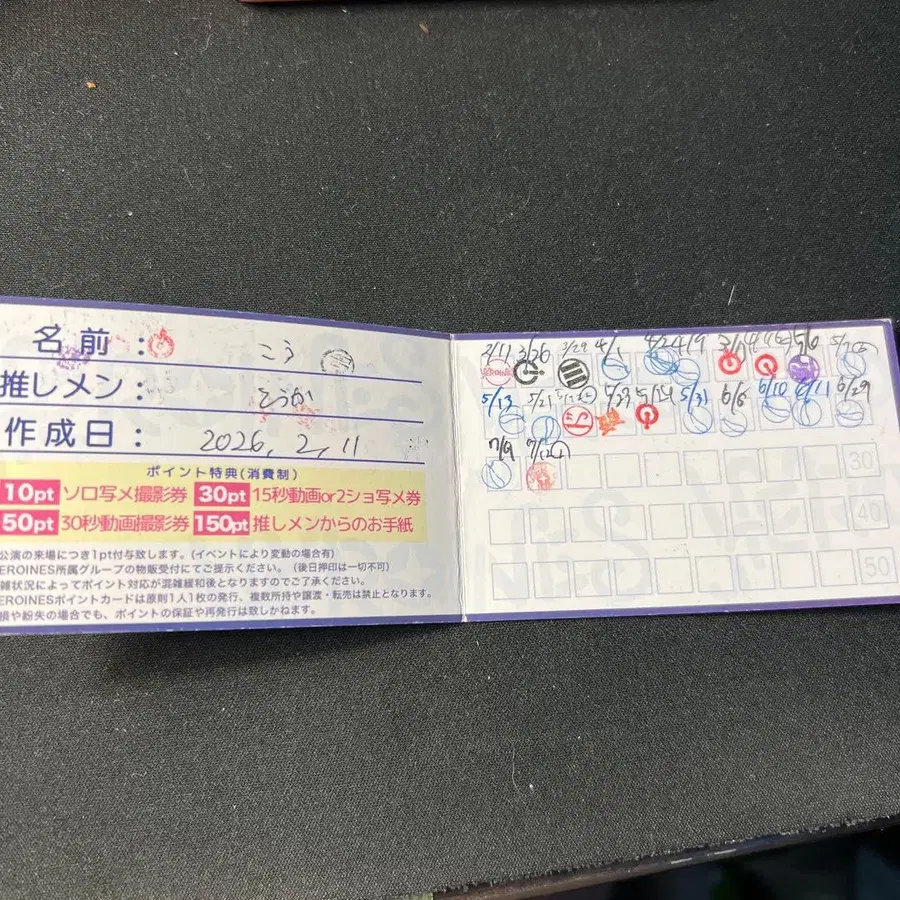 名前: こう
推しメン: とうか
作成日: 2026, 2, 11
ポイント特典(消費制)
10pt ソロ写メ撮影券 30pt 15秒動画or2ショ写メ券
50pt 30秒動画撮影券 150pt 推しメンからのお手紙
公演の来場につき1pt付与致します。(イベントにより変動の場合有)
EROINES所属グループの物販受付にてご提示ください。(後日押印は一切不可)
雑状況によってポイント対応が混雑緩和後となりますのでご了承ください。
EROINESポイントカードは原則1人1枚の発行、複数所持や譲渡・転売は禁止となります。
損や紛失の場合でも、ポイントの保証や再発行は致しかねます。
2/11 3/26 3/29 4/1 4/2 4/9 5/6
5/13 5/21 5/31 6/6 6/10 6/11 6/29
30
40
50